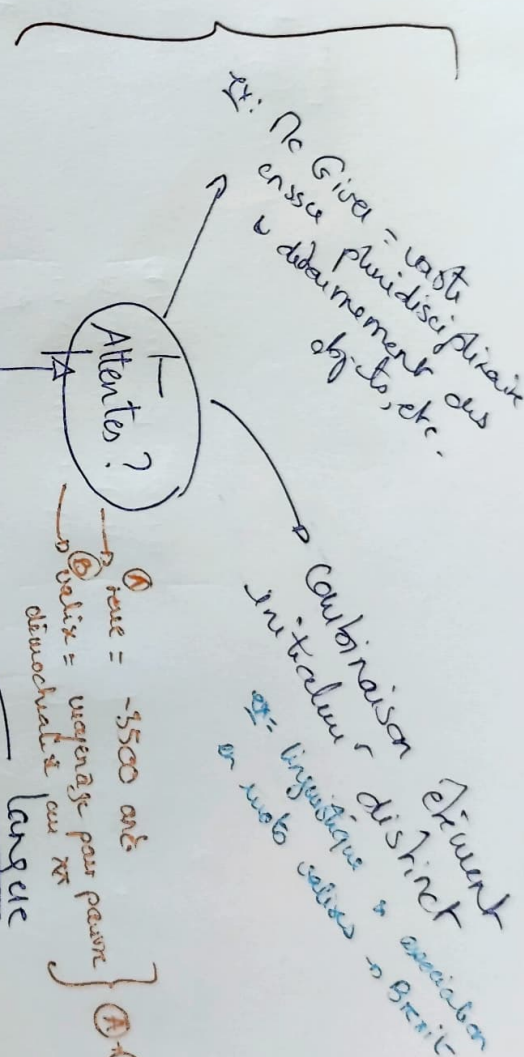 ex: Mc Giver = vaste
pluridisciplinaire
& détournement des
objets, etc.
Attentes ?
combinaison élément
initialemt distinct
ex = linguistique & association
en mots valises → Brexit
Ⓐ roue = -3500 ans
Ⓑ valise = voyage pour pauvre
démocratie au XX
Ⓐ
Langue